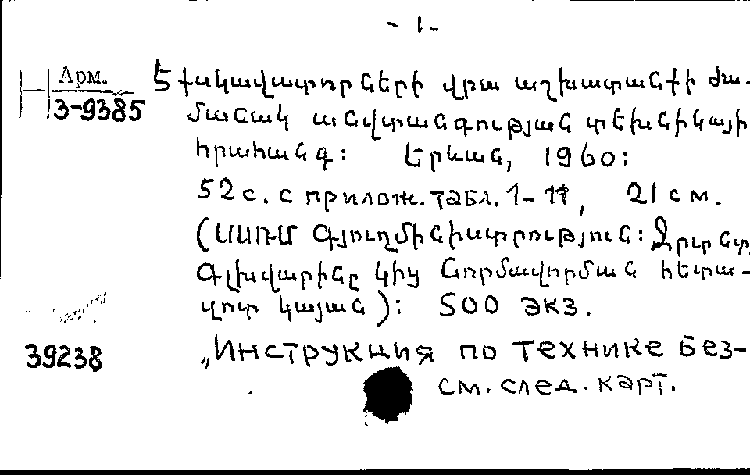 - 1 -
Арм.
3-9385
Էքսկավատորների վրա աշխատանքի ժա-
մանակ անվտանգության տեխնիկայի
հրահանգ: Երևան, 1960:
52 с. с прилож. табл. 1-11, 21 см.
(ՍՍՌՄ Գյուղմինիստրություն: Ջրտնտ
Գլխվարինը կից Նորմավորման հետա-
զոտ կայան): 500 экз.
39238
„Инструкция по технике без-
см. след. карт.